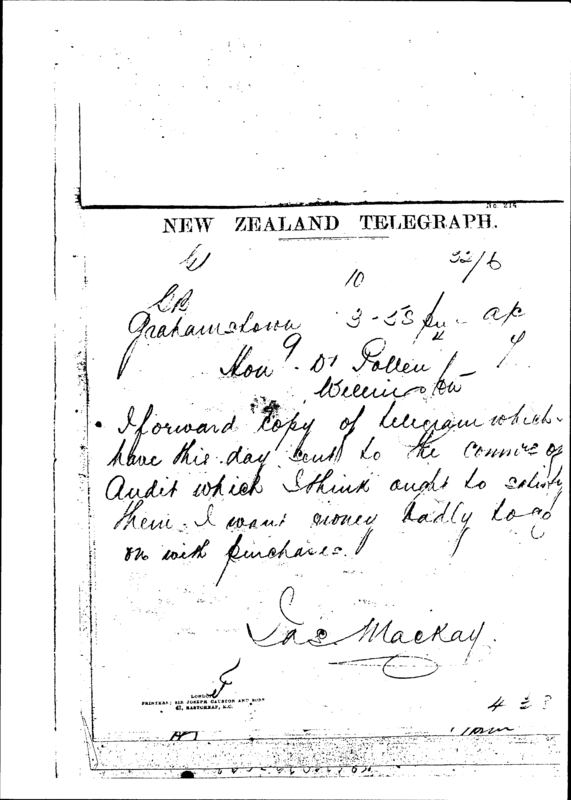 No. 214
NEW ZEALAND TELEGRAPH.
10
22/6
Grahamstown 3-53 pm
Hon Dr Pollen
Wellington
I forward copy of telegram which
have this day sent to the Commrs of
Audit which I think ought to satisfy
them. I want money badly to go
on with purchases.
Jas Mackay.
LONDON
PRINTERS; SIR JOSEPH CAUSTON AND SONS
47, EASTCHEAP, E.C.